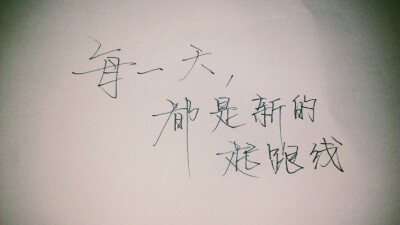 每一天，
都是新的
起跑线